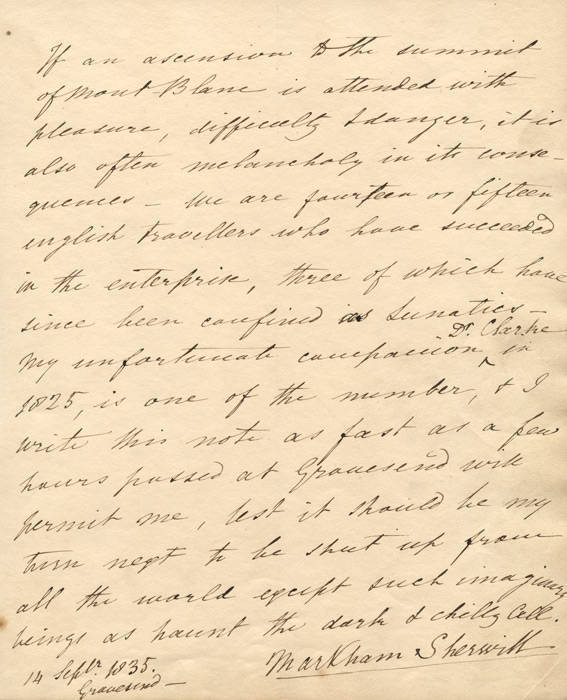 If an ascension to the summit
of Mont Blanc is attended with
pleasure, difficulty & danger, it is
also often melancholy in its conse-
quences - We are fourteen or fifteen
english travellers who have succeeded
in the enterprise, three of which have
since been confined as Lunatics -
Dr. Clarke
My unfortunate companion ^ in
1825, is one of the number, & I
write this note as fast as a few
hours passed at Gravesend will
permit me, lest it should be my
turn next to be shut up from
all the world except such imaginary
beings as haunt the dark & chilly Cell.
14 Septr. 1835. Markham Sherwill
Gravesend -